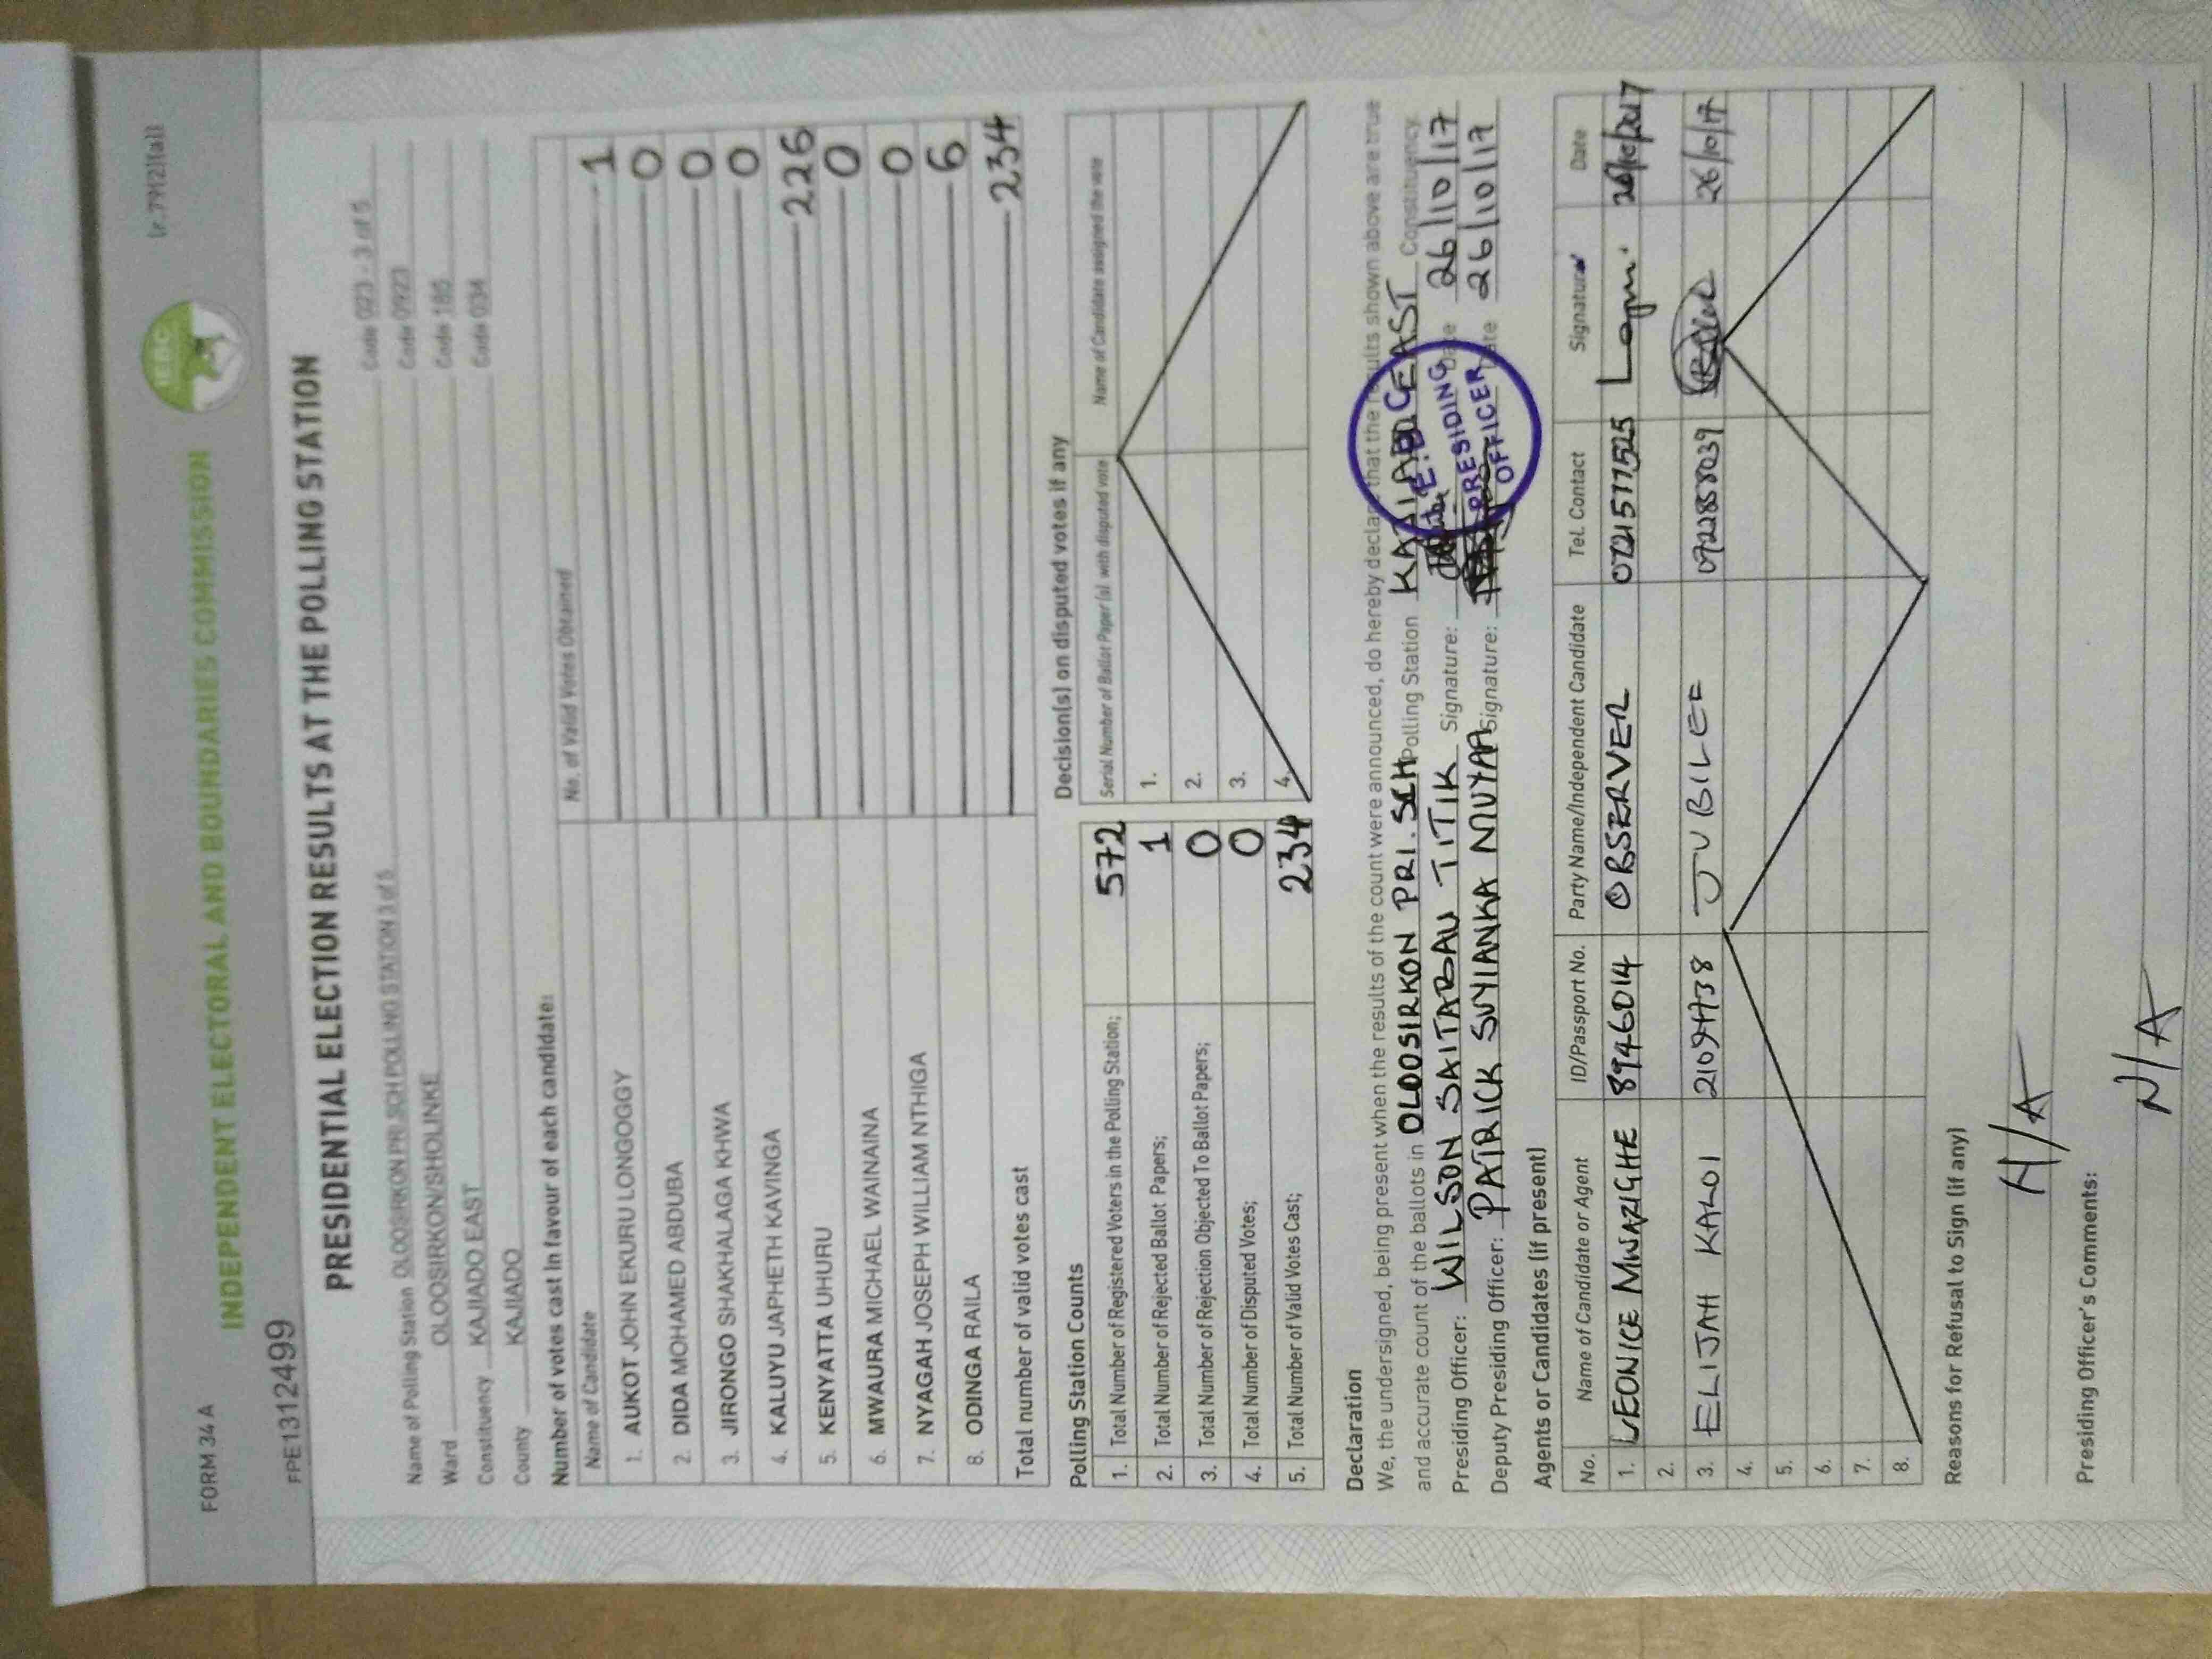 FORM 34A
(r.79)2)(a))
INDEPENDENT ELECTORAL AND BOUNDARIES COMMISSION
IEBC
FPE1312499
PRESIDENTIAL ELECTION RESULTS AT THE POLLING STATION
Name of Polling Station OLOOSIRKON PRI SCH POLLING STATION 3 of 5 Code 023 - 3 of 5
Ward OLOOSIRKON/SHOLINKE Code 0923
Constituency KAJIADO EAST Code 185
County KAJIADO Code 034
Number of votes cast in favour of each candidate:
Name of Candidate No. of Valid Votes Obtained
1. AUKOT JOHN EKURU LONGOGGY 1
2. DIDA MOHAMED ABDUBA 0
3. JIRONGO SHAKHALAGA KHWA 0
4. KALUYU JAPHETH KAVINGA 0
5. KENYATTA UHURU 226
6. MWAURA MICHAEL WAINAINA 0
7. NYAGAH JOSEPH WILLIAM NTHIGA 0
8. ODINGA RAILA 6
Total number of valid votes cast 234
Polling Station Counts
1. Total Number of Registered Voters in the Polling Station; 572
2. Total Number of Rejected Ballot Papers; 1
3. Total Number of Rejection Objected To Ballot Papers; 0
4. Total Number of Disputed Votes; 0
5. Total Number of Valid Votes Cast; 234
Decision(s) on disputed votes if any
Serial Number of Ballot Paper (s) with disputed vote Name of Candidate assigned the vote
1.
2.
3.
4.
Declaration
We, the undersigned, being present when the results of the count were announced, do hereby declare that the results shown above are true
and accurate count of the ballots in OLOOSIRKON PRI. SCH Polling Station KAJIADO EAST Constituency.
Presiding Officer: WILSON SAITABAU TITIK Signature: Date 26/10/17
Deputy Presiding Officer: PATRICK SUYIANKA MUYAA Signature: Date 26/10/17
PRESIDING
OFFICER
Agents or Candidates (if present)
No. Name of Candidate or Agent ID/Passport No. Party Name/Independent Candidate Tel. Contact Signature Date
1. LEONICE MWAZIGHE 8946014 OBSERVER 0721517525 26/10/2017
2.
3. ELIJAH KALOI JUBILEE 0722858039 26/10/17
4.
5.
6.
7.
8.
Reasons for Refusal to Sign (if any)
N/A
Presiding Officer's Comments:
N/A